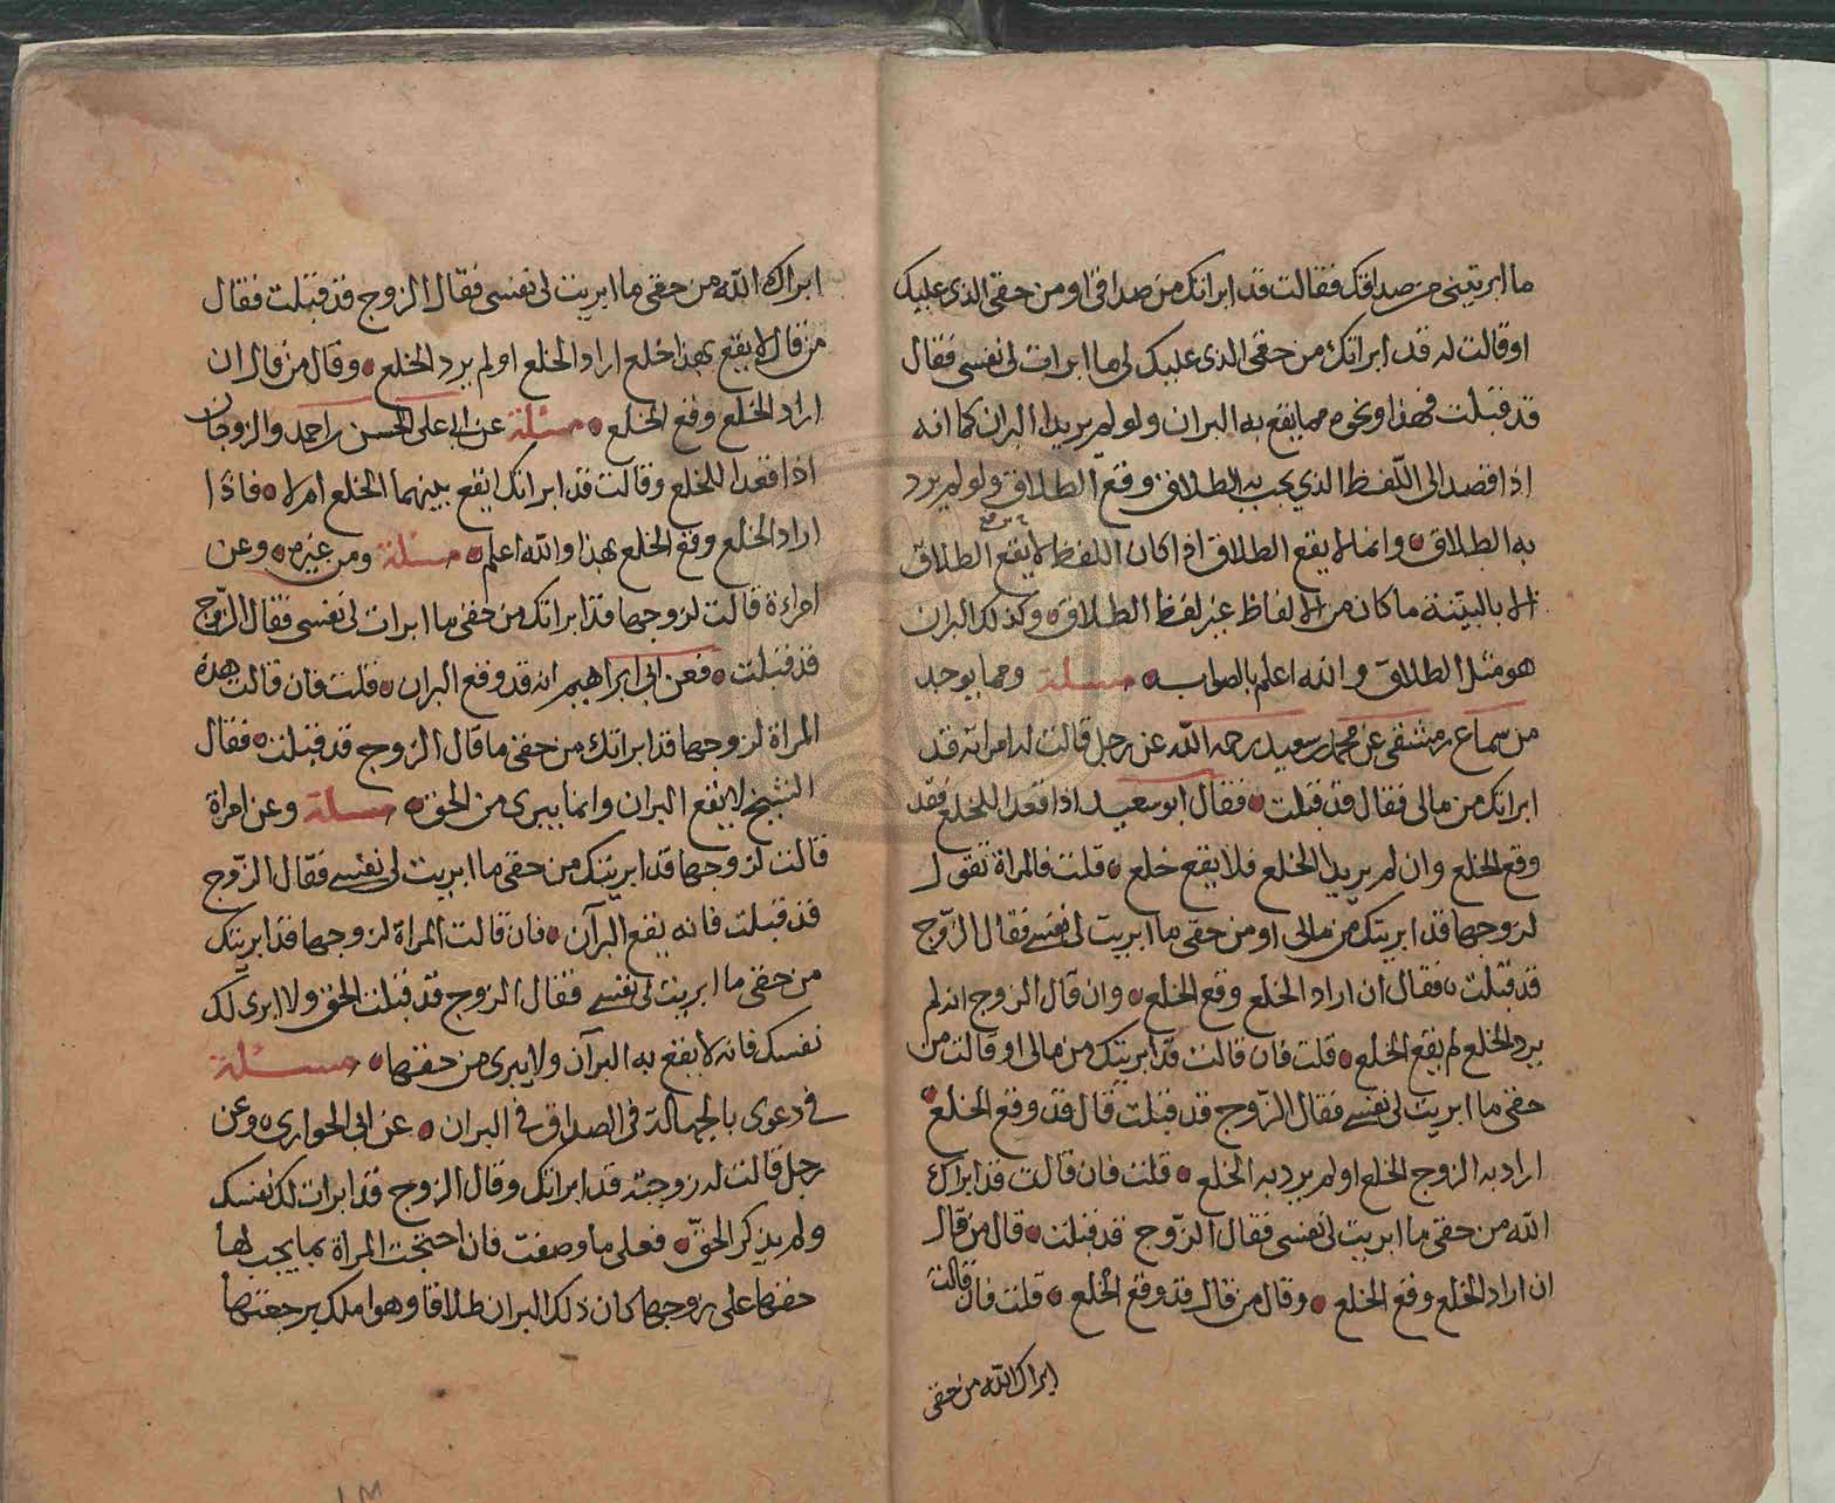 ما ابريتيني من صداقك فقالت قد ابراتك من صداقي او من حقي الذي عليك
او قالت له قد ابراتك من حقي الذي عليك لي ما ابرات لي نفسي فقال
قد قبلت فهذا ونحوه مما يقع به البران ولو لم يريدا البران كما انه
اذا قصد الى اللفظ الذي يجب به الطلاق وقع الطلاق ولو لم يرد
به الطلاق وانما لا يقع الطلاق اذا كان اللفظ لا يقع الطلاق
الا بالنية ما كان من الالفاظ غير لفظ الطلاق وكذلك البران
هو مثل الطلاق والله اعلم بالصواب مسئلة ومما يوجد
من سماع مثنقى عن محمد بن سعيد رحمه الله عن رجل قالت له امراته قد
ابراتك من مالي فقال قد قبلت فقال ابو سعيد اذا قعدا للخلع فقد
وقع الخلع وان لم يريدا الخلع فلا يقع خلع قلت فالمراة تقول
لزوجها قد ابريتك من مالي او من حقي ما ابريت لي نفسي فقال الزوج
قد قبلت فقال ان اراد الخلع وقع الخلع وان قال الزوج انه لم
يرد الخلع لم يقع الخلع قلت فان قالت قد ابريتك من مالي او قالت من
حقي ما ابريت لي نفسي فقال الزوج قد قبلت قال قد وقع الخلع
اراد به الزوج الخلع او لم يرد به الخلع قلت فان قالت قد ابراك
الله من حقي ما ابريت لي نفسي فقال الزوج قد قبلت قال من قال
ان اراد الخلع وقع الخلع وقال من قال قد وقع الخلع قلت فان قالت
ابراك الله من حقي
ابراك الله من حقي ما ابريت لي نفسي فقال الزوج قد قبلت فقال
من قال لا يقع بهذا خلع اراد الخلع او لم يرد الخلع وقال من قال ان
اراد الخلع وقع الخلع مسئلة عن ابي علي الحسن بن احمد والزوجان
اذا قعدا للخلع وقالت قد ابراتك ايقع بينهما الخلع ام لا فاذا
اراد الخلع وقع الخلع بهذا والله اعلم مسئلة ومن غيره وعن
امراءة قالت لزوجها قد ابراتك من حقي ما ابرات لي نفسي فقال الزوج
قد قبلت فعن ابي ابراهيم انه قد وقع البران قلت فان قالت هذه
المراة لزوجها قد ابراتك من حقي ما قال الزوج قد قبلت فقال
الشيخ لا يقع البران وانما يبرى من الحق مسئلة وعن امراة
قالت لزوجها قد ابريتك من حقي ما ابريت لي نفسي فقال الزوج
قد قبلت فانه يقع البرآن فان قالت المراة لزوجها قد ابريتك
من حقي ما ابريت لي نفسي فقال الزوج قد قبلت الحق ولا ابرى لك
نفسك فانه لا يقع به البرآن ولا يبرى من حقها مسئلة
في دعوى بالجهالة في الصداق في البران عن ابي الحواري وعن
رجل قالت له زوجته قد ابراتك وقال الزوج قد ابرات لك نفسك
ولم يذكر الحق فعلى ما وصفت فان احتجت المراة بما يجب لها
حقها على زوجها كان ذلك البران طلاقا وهو املك برجعتها